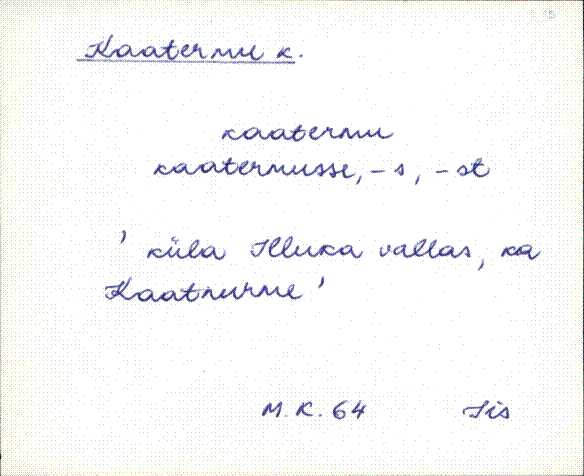 Kaatermu k.
kaatermu
kaatermusse, -s, -st
' küla Illuka vallas, ka
Kaatnurme '
M. K. 64 Iis